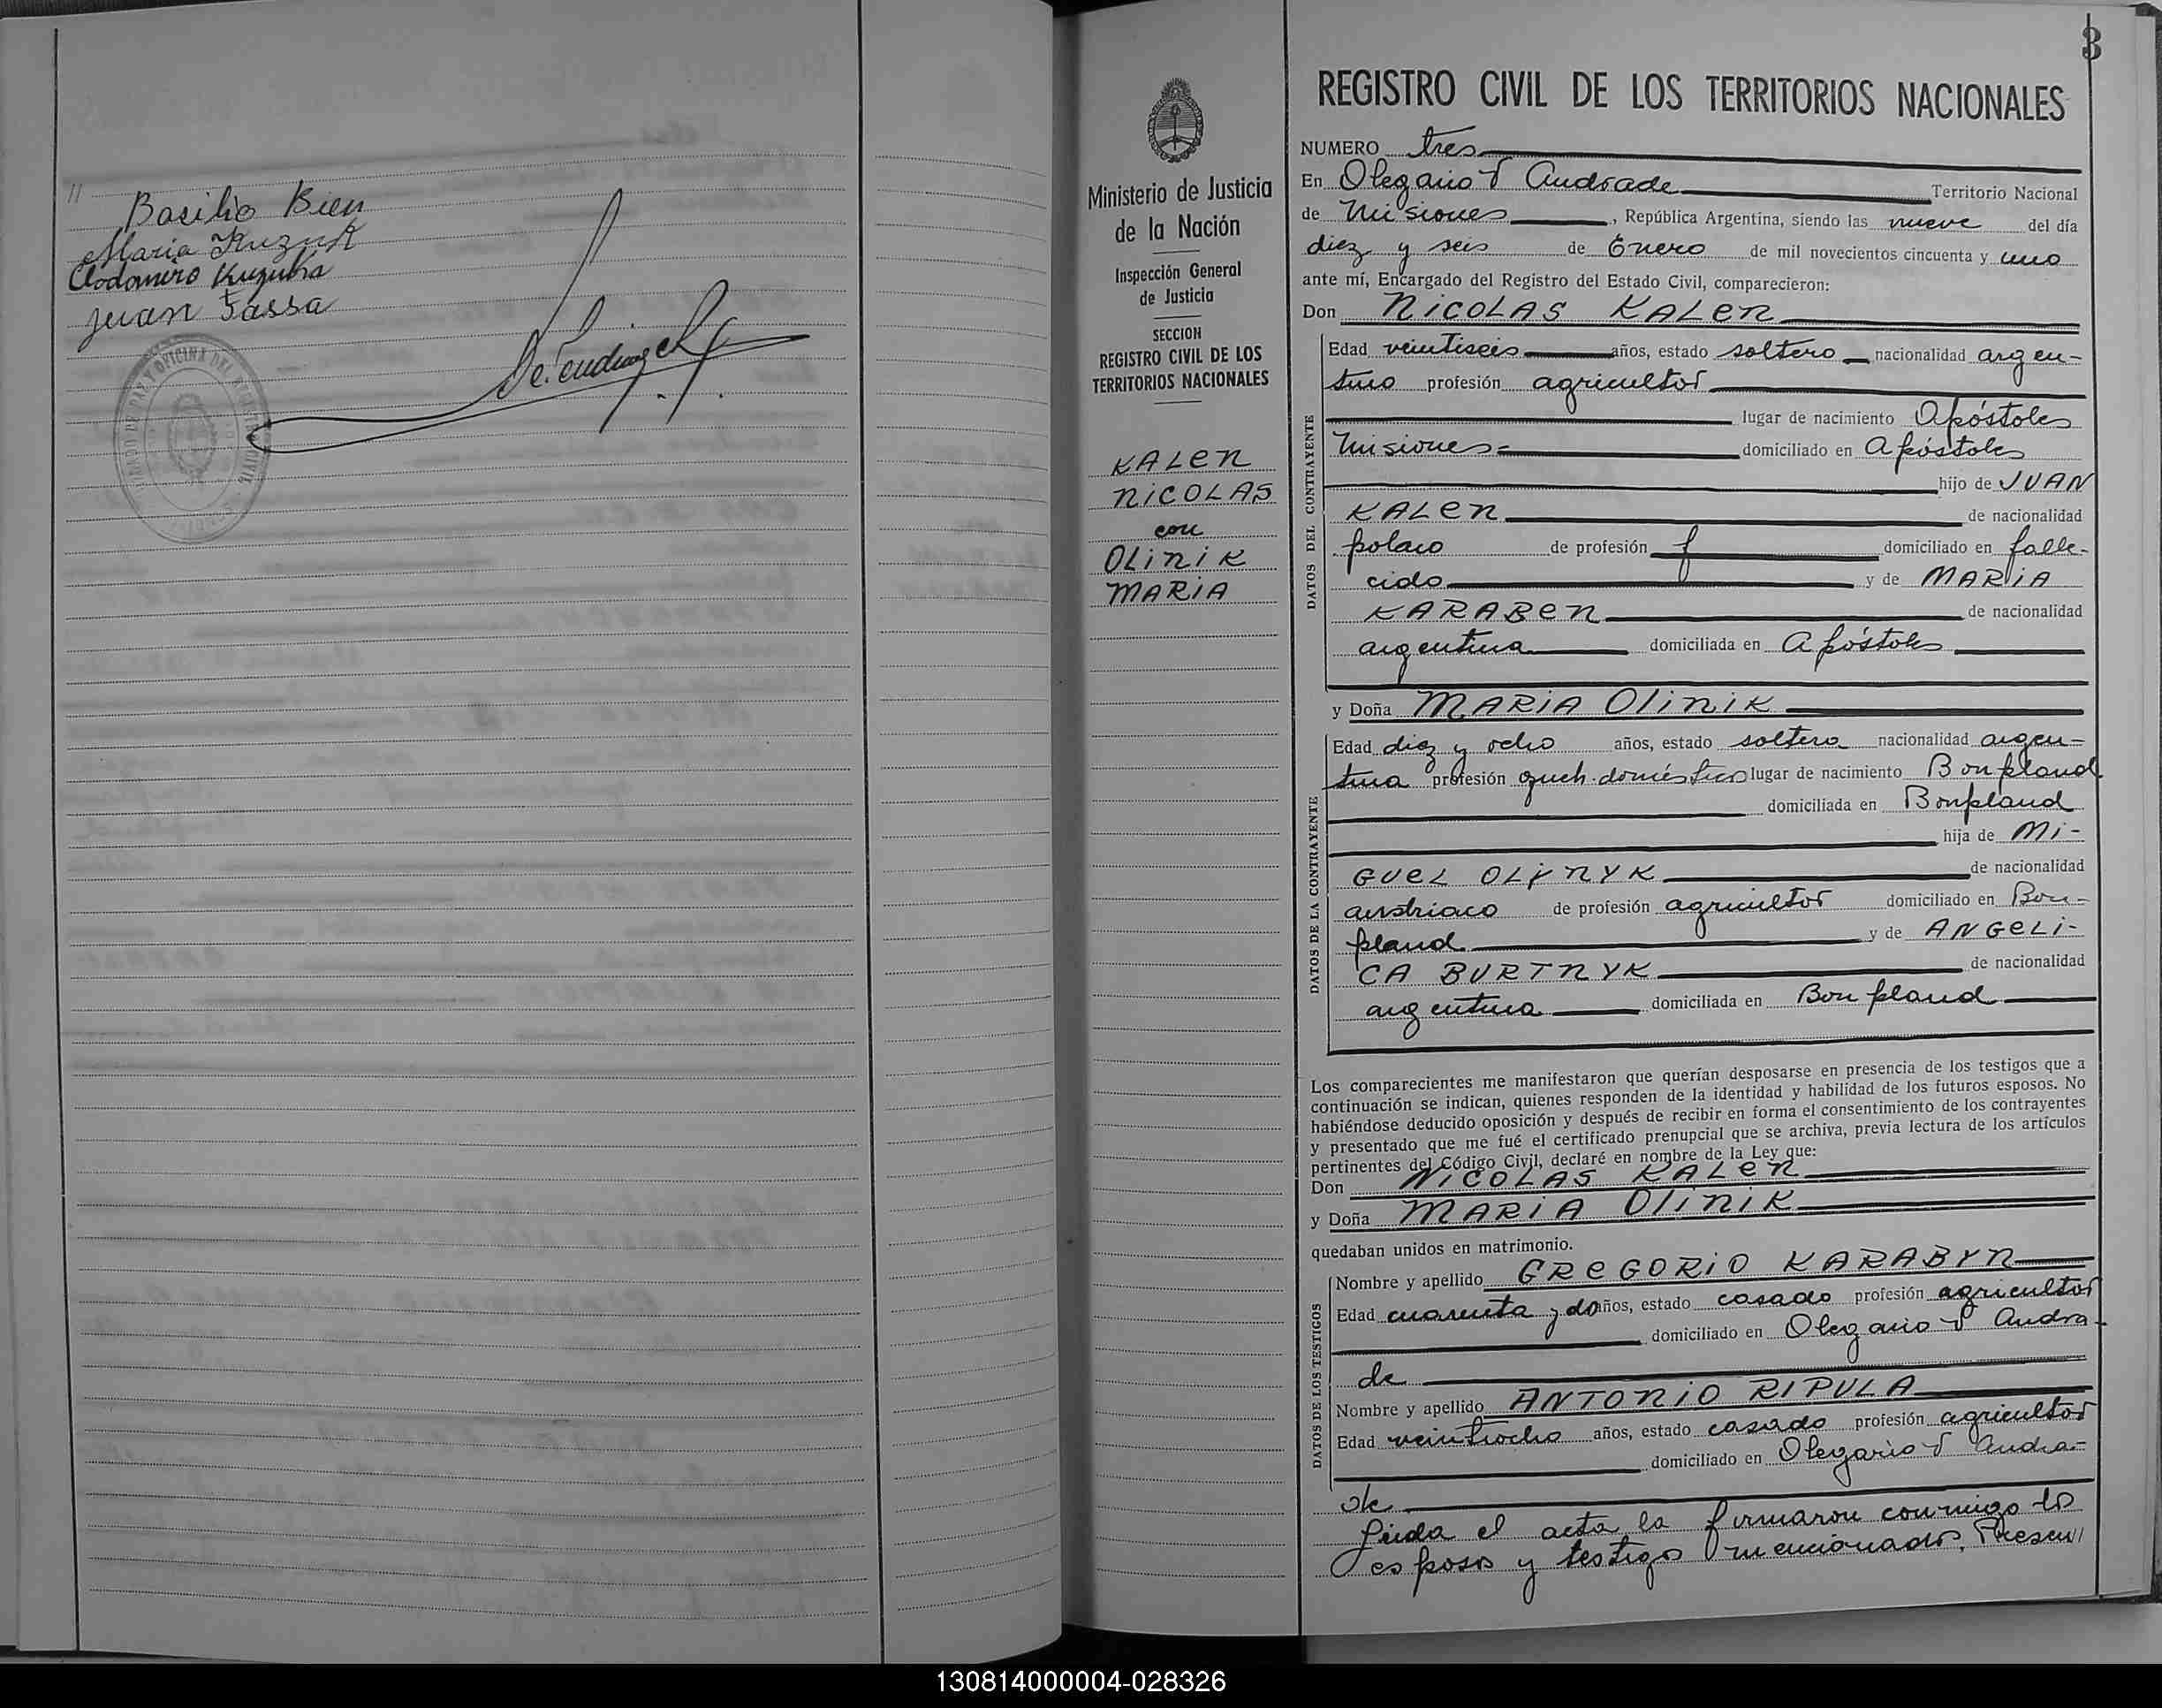 Basilio Bien
Maria Kuzuk
Clodomiro Kuzubra
Juan Fassa
3
REGISTRO CIVIL DE LOS TERRITORIOS NACIONALES
Ministerio de Justicia
de la Nación
Inspección General
de Justicia
SECCION
REGISTRO CIVIL DE LOS
TERRITORIOS NACIONALES
KALEN
NICOLAS
con
OLINIK
MARIA
NUMERO tres
En Olegario V Andrade Territorio Nacional
de Misiones, República Argentina, siendo las nueve del día
diez y seis de Enero de mil novecientos cincuenta y uno
ante mí, Encargado del Registro del Estado Civil, comparecieron:
Don NICOLAS KALEN
DATOS DEL CONTRAYENTE
Edad veintiseis años, estado soltero nacionalidad argen-
tino profesión agricultor
lugar de nacimiento Apóstoles
Misiones domiciliado en Apóstoles
hijo de JUAN
KALEN de nacionalidad
polaco de profesión domiciliado en falle-
cido y de MARIA
KARABEN de nacionalidad
argentina domiciliada en Apóstoles
y Doña MARIA OliNIK
DATOS DE LA CONTRAYENTE
Edad diez y ocho años, estado soltera nacionalidad argen-
tina profesión queh. domésticos lugar de nacimiento Bonpland
domiciliada en Bonpland
hija de Mi-
GUEL OLYNYK de nacionalidad
austriaco de profesión agricultor domiciliado en Bon-
pland y de ANGELI-
CA BURTNYK de nacionalidad
argentina domiciliada en Bonpland
Los comparecientes me manifestaron que querían desposarse en presencia de los testigos que a
continuación se indican, quienes responden de la identidad y habilidad de los futuros esposos. No
habiéndose deducido oposición y después de recibir en forma el consentimiento de los contrayentes
y presentado que me fué el certificado prenupcial que se archiva, previa lectura de los artículos
pertinentes del Código Civil, declaré en nombre de la Ley que:
Don NICOLAS KALEN
y Doña MARIA OliNIK
quedaban unidos en matrimonio.
DATOS DE LOS TESTIGOS
Nombre y apellido GREGORIO KARABYN
Edad cuarenta y dos años, estado casado profesión agricultor
domiciliado en Olegario V Andra-
de
Nombre y apellido ANTONIO RIPULA
Edad veintiocho años, estado casado profesión agricultor
domiciliado en Olegario V Andra-
de
Leida el acta la firmaron conmigo los
esposos y testigos mencionados. Presen//
130814000004-028326